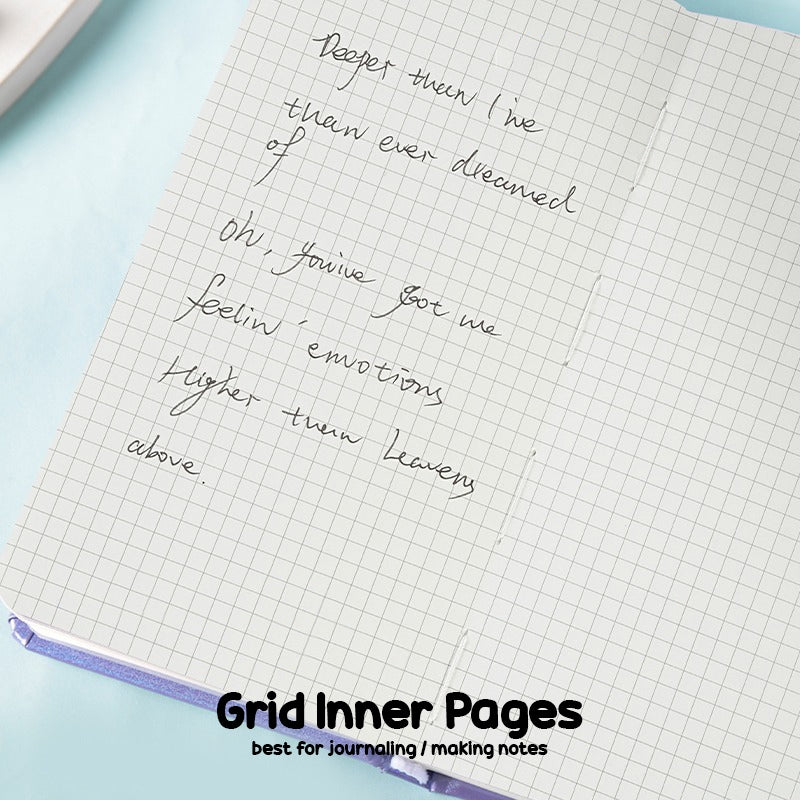 Deeper than I've
than ever dreamed
of
Oh, you've got me
feelin' emotions
Higher than heavens
above.
Grid Inner Pages
best for journaling / making notes